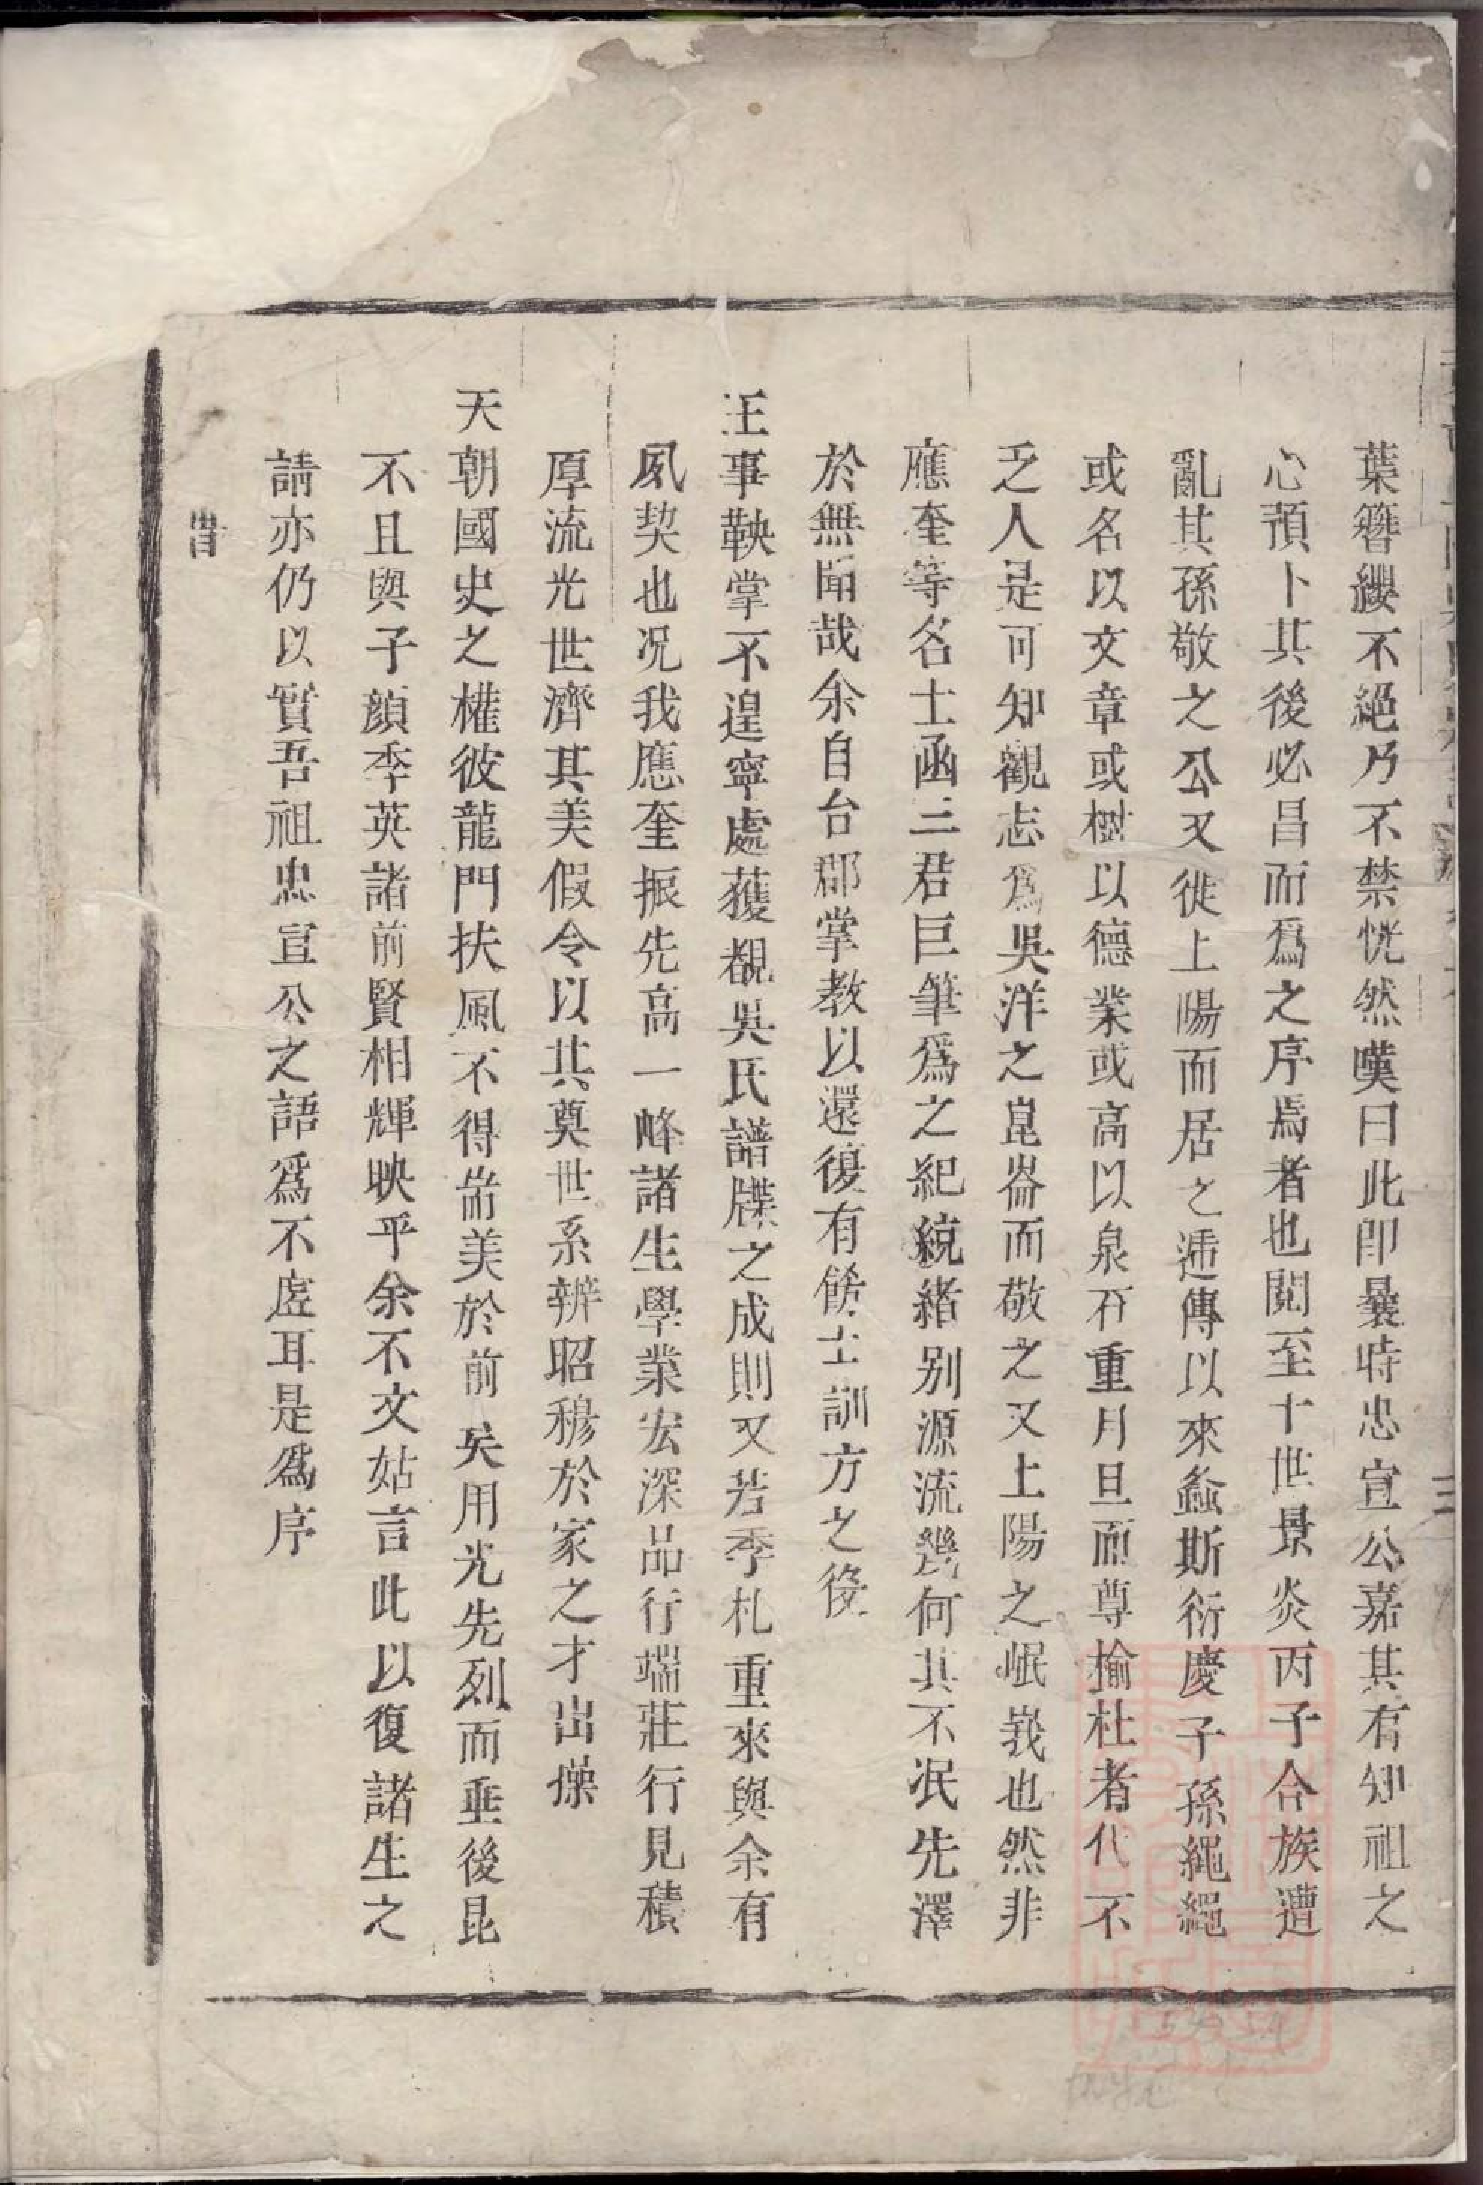 葉簪纓不絕乃不禁恍然嘆曰此卽曩時忠宣公嘉其有知祖之
心預卜其後必昌而爲之序焉者也閱至十世景炎丙子合族遭
亂其孫敬之公又徙上陽而居之遞傳以來螽斯衍慶子孫繩繩
或名以文章或樹以德業或高以泉石重月旦而尊榆杜者代不
乏人是可知觀志爲吳洋之崑崙而敬之又上陽之岷峩也然非
應奎等名士函三君巨筆爲之紀統緒别源流幾何其不泯先澤
於無聞哉余自台郡掌教以還復有餘士訓方之役
王事鞅掌不遑寧處獲覩吳氏譜牒之成則又若季札重來與余有
夙契也况我應奎振先高一峰諸生學業宏深品行端莊行見積
厚流光世濟其美假令以其奠世系辨昭穆於家之才出操
天朝國史之權彼龍門扶風不得耑美於前矣用光先烈而垂後昆
不且與子顏季英諸前賢相輝映乎余不文姑言此以復諸生之
請亦仍以實吾祖忠宣公之語爲不虛耳是爲序
旹